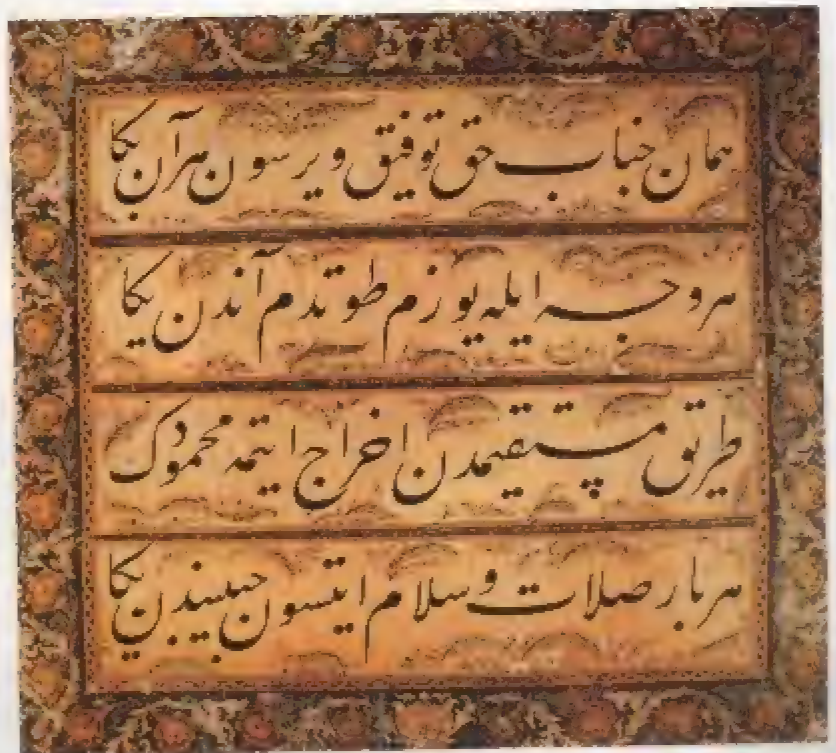 همان جناب حق توفیق ویرسون هر آن بکا
هر وجه ایله یوزم طوتدم آندن یکا
طریق مستقیمدن اخراج ایتمه محمودک
هر بار صلات و سلام ایتسون حبیبندن بکا